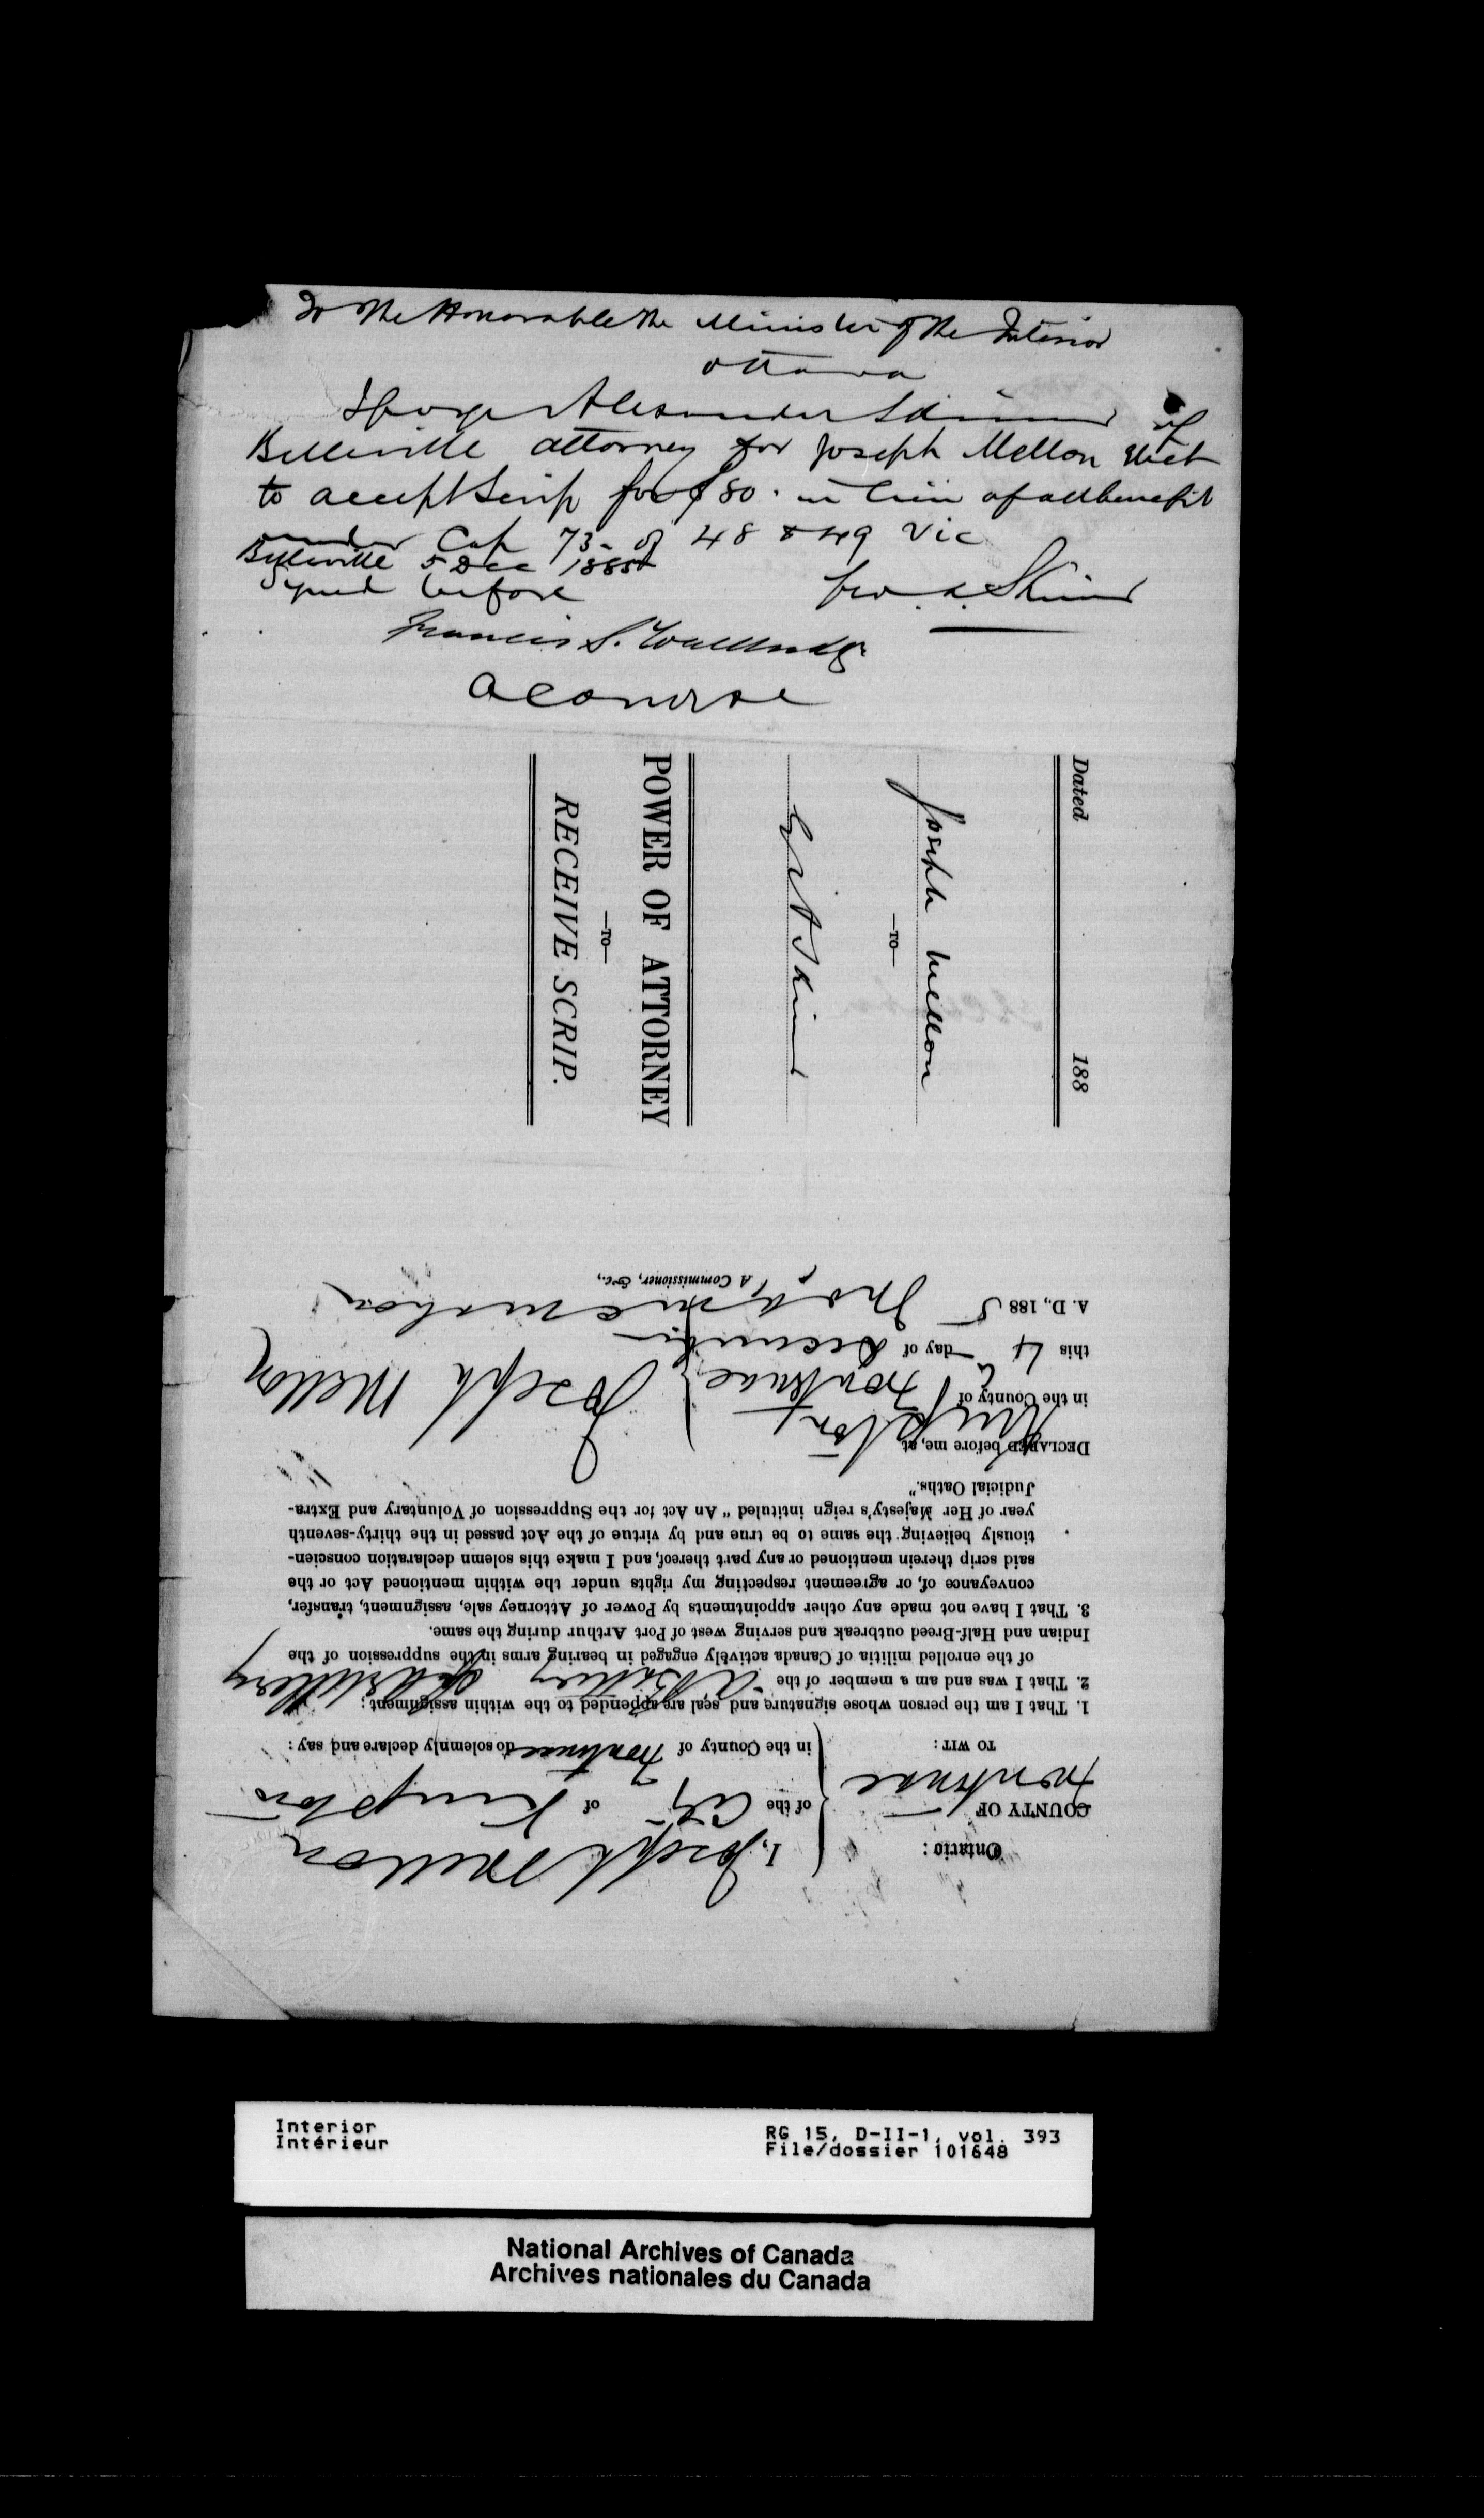 To the Honorable the Minister of the Interior
Ottawa
I George Alexander Skinner of
Belleville attorney for Joseph Mellon elect
to accept Scrip for $80. in lieu of all benefit
under Cap 73 of 48 & 49 Vic
Belleville 5 Dec 1885
Signed before
Geo. A. Skinner
Francis S.
Dated 188
Joseph Mellon
—TO—
G A Skinner
POWER OF ATTORNEY
—TO—
RECEIVE SCRIP.
Ontario :
COUNTY OF
Frontenac
TO WIT :
I, Joseph Mellon
of the City of Kingston
in the County of Frontenac do solemnly declare and say :
1. That I am the person whose signature and seal are appended to the within assignment ;
2. That I was and am a member of the "A" Battery Artillery
of the enrolled militia of Canada actively engaged in bearing arms in the suppression of the
Indian and Half-Breed outbreak and serving west of Port Arthur during the same.
3. That I have not made any other appointments by Power of Attorney sale, assignment, transfer,
conveyance of, or agreement respecting my rights under the within mentioned Act or the
said scrip therein mentioned or any part thereof, and I make this solemn declaration conscien-
tiously believing the same to be true and by virtue of the Act passed in the thirty-seventh
year of Her Majesty's reign intituled "An Act for the Suppression of Voluntary and Extra-
Judicial Oaths."
DECLARED before me, at
Kingston
in the County of Frontenac
this 4 day of December
A. D., 188 5
Joseph Mellon
A Commissioner, &c.,
Interior
Intérieur
RG 15, D-II-1, vol. 393
File/dossier 101648
National Archives of Canada
Archives nationales du Canada